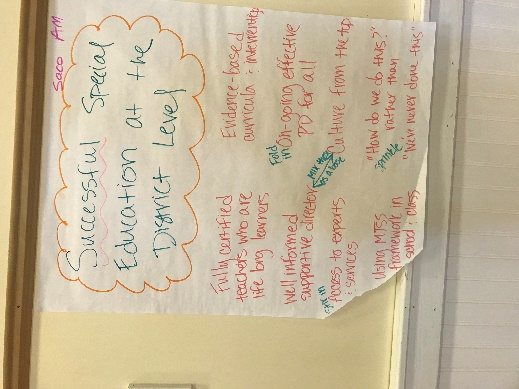 Saco AM
Successful Special
Education at the
District Level
Fully certified
teachers who are
life long learners
Well informed
supportive director
in
Access to experts
: services
Using MTSS
framework in
school : class
Evidence-based
curricula : interventions
Fold
in
On-going effective
PD for all
Mix well
as a base
Culture from the top
"How do we do this?"
rather than
sprinkle
"We've never done this"